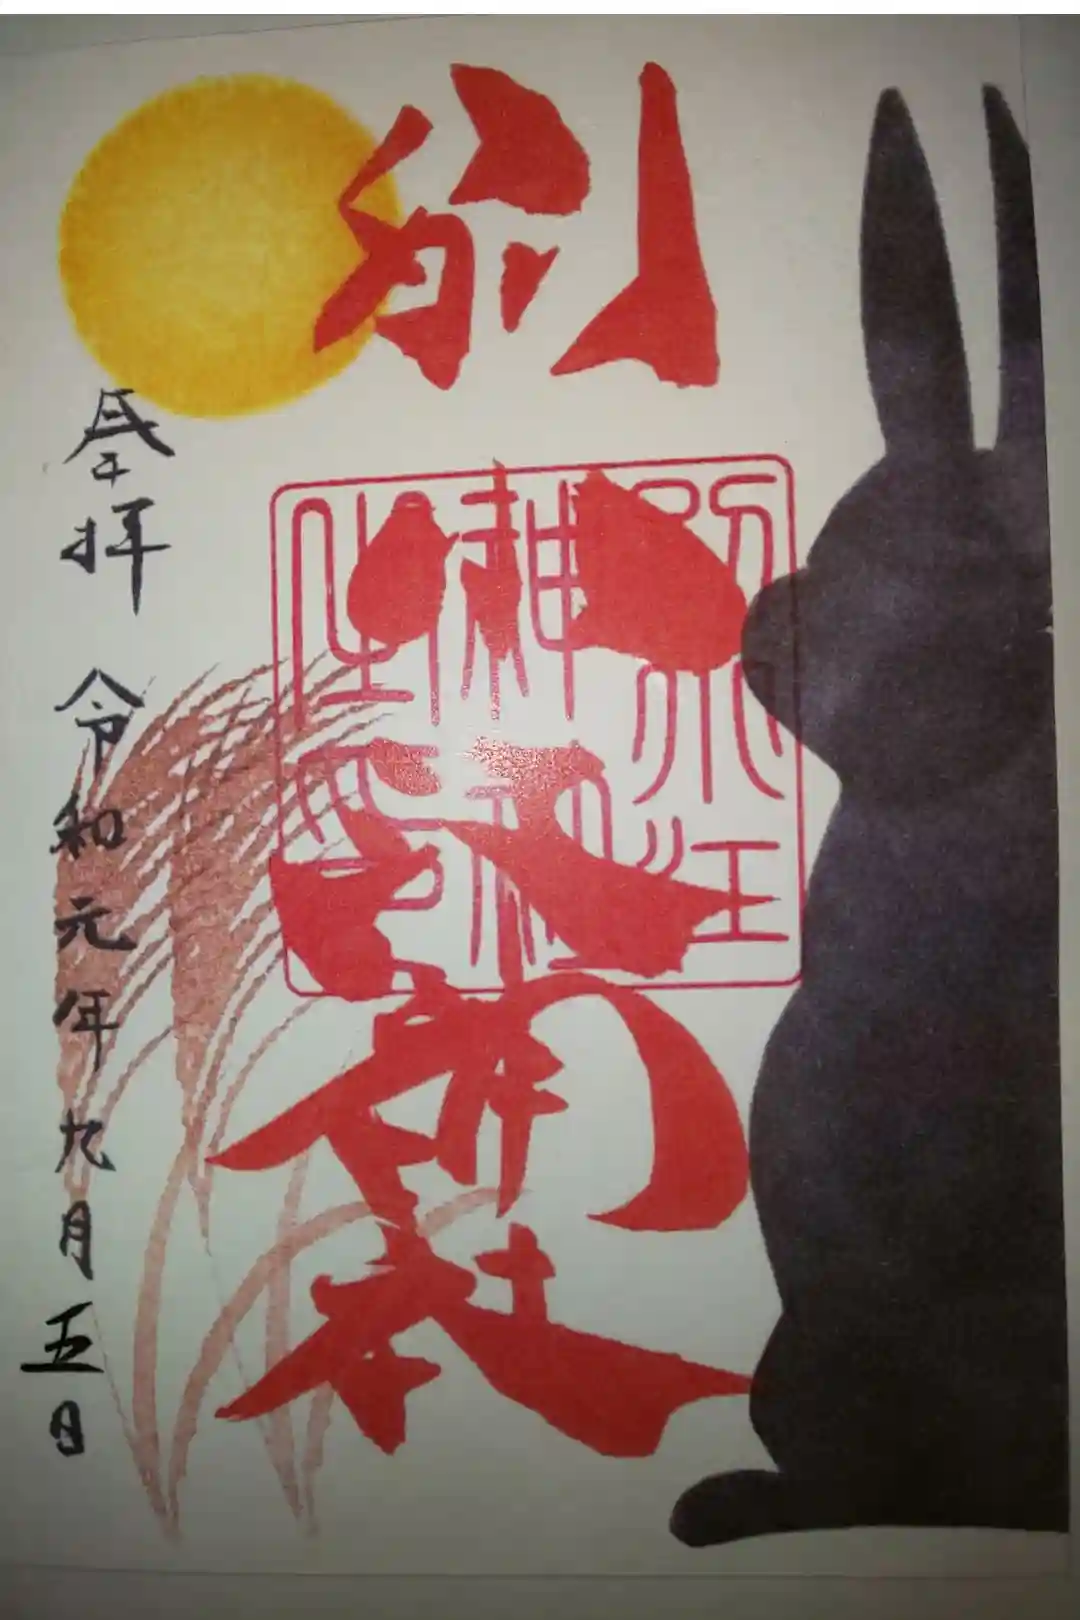 別小江神社
別小江
神社
之印
奉拝 令和元年九月五日